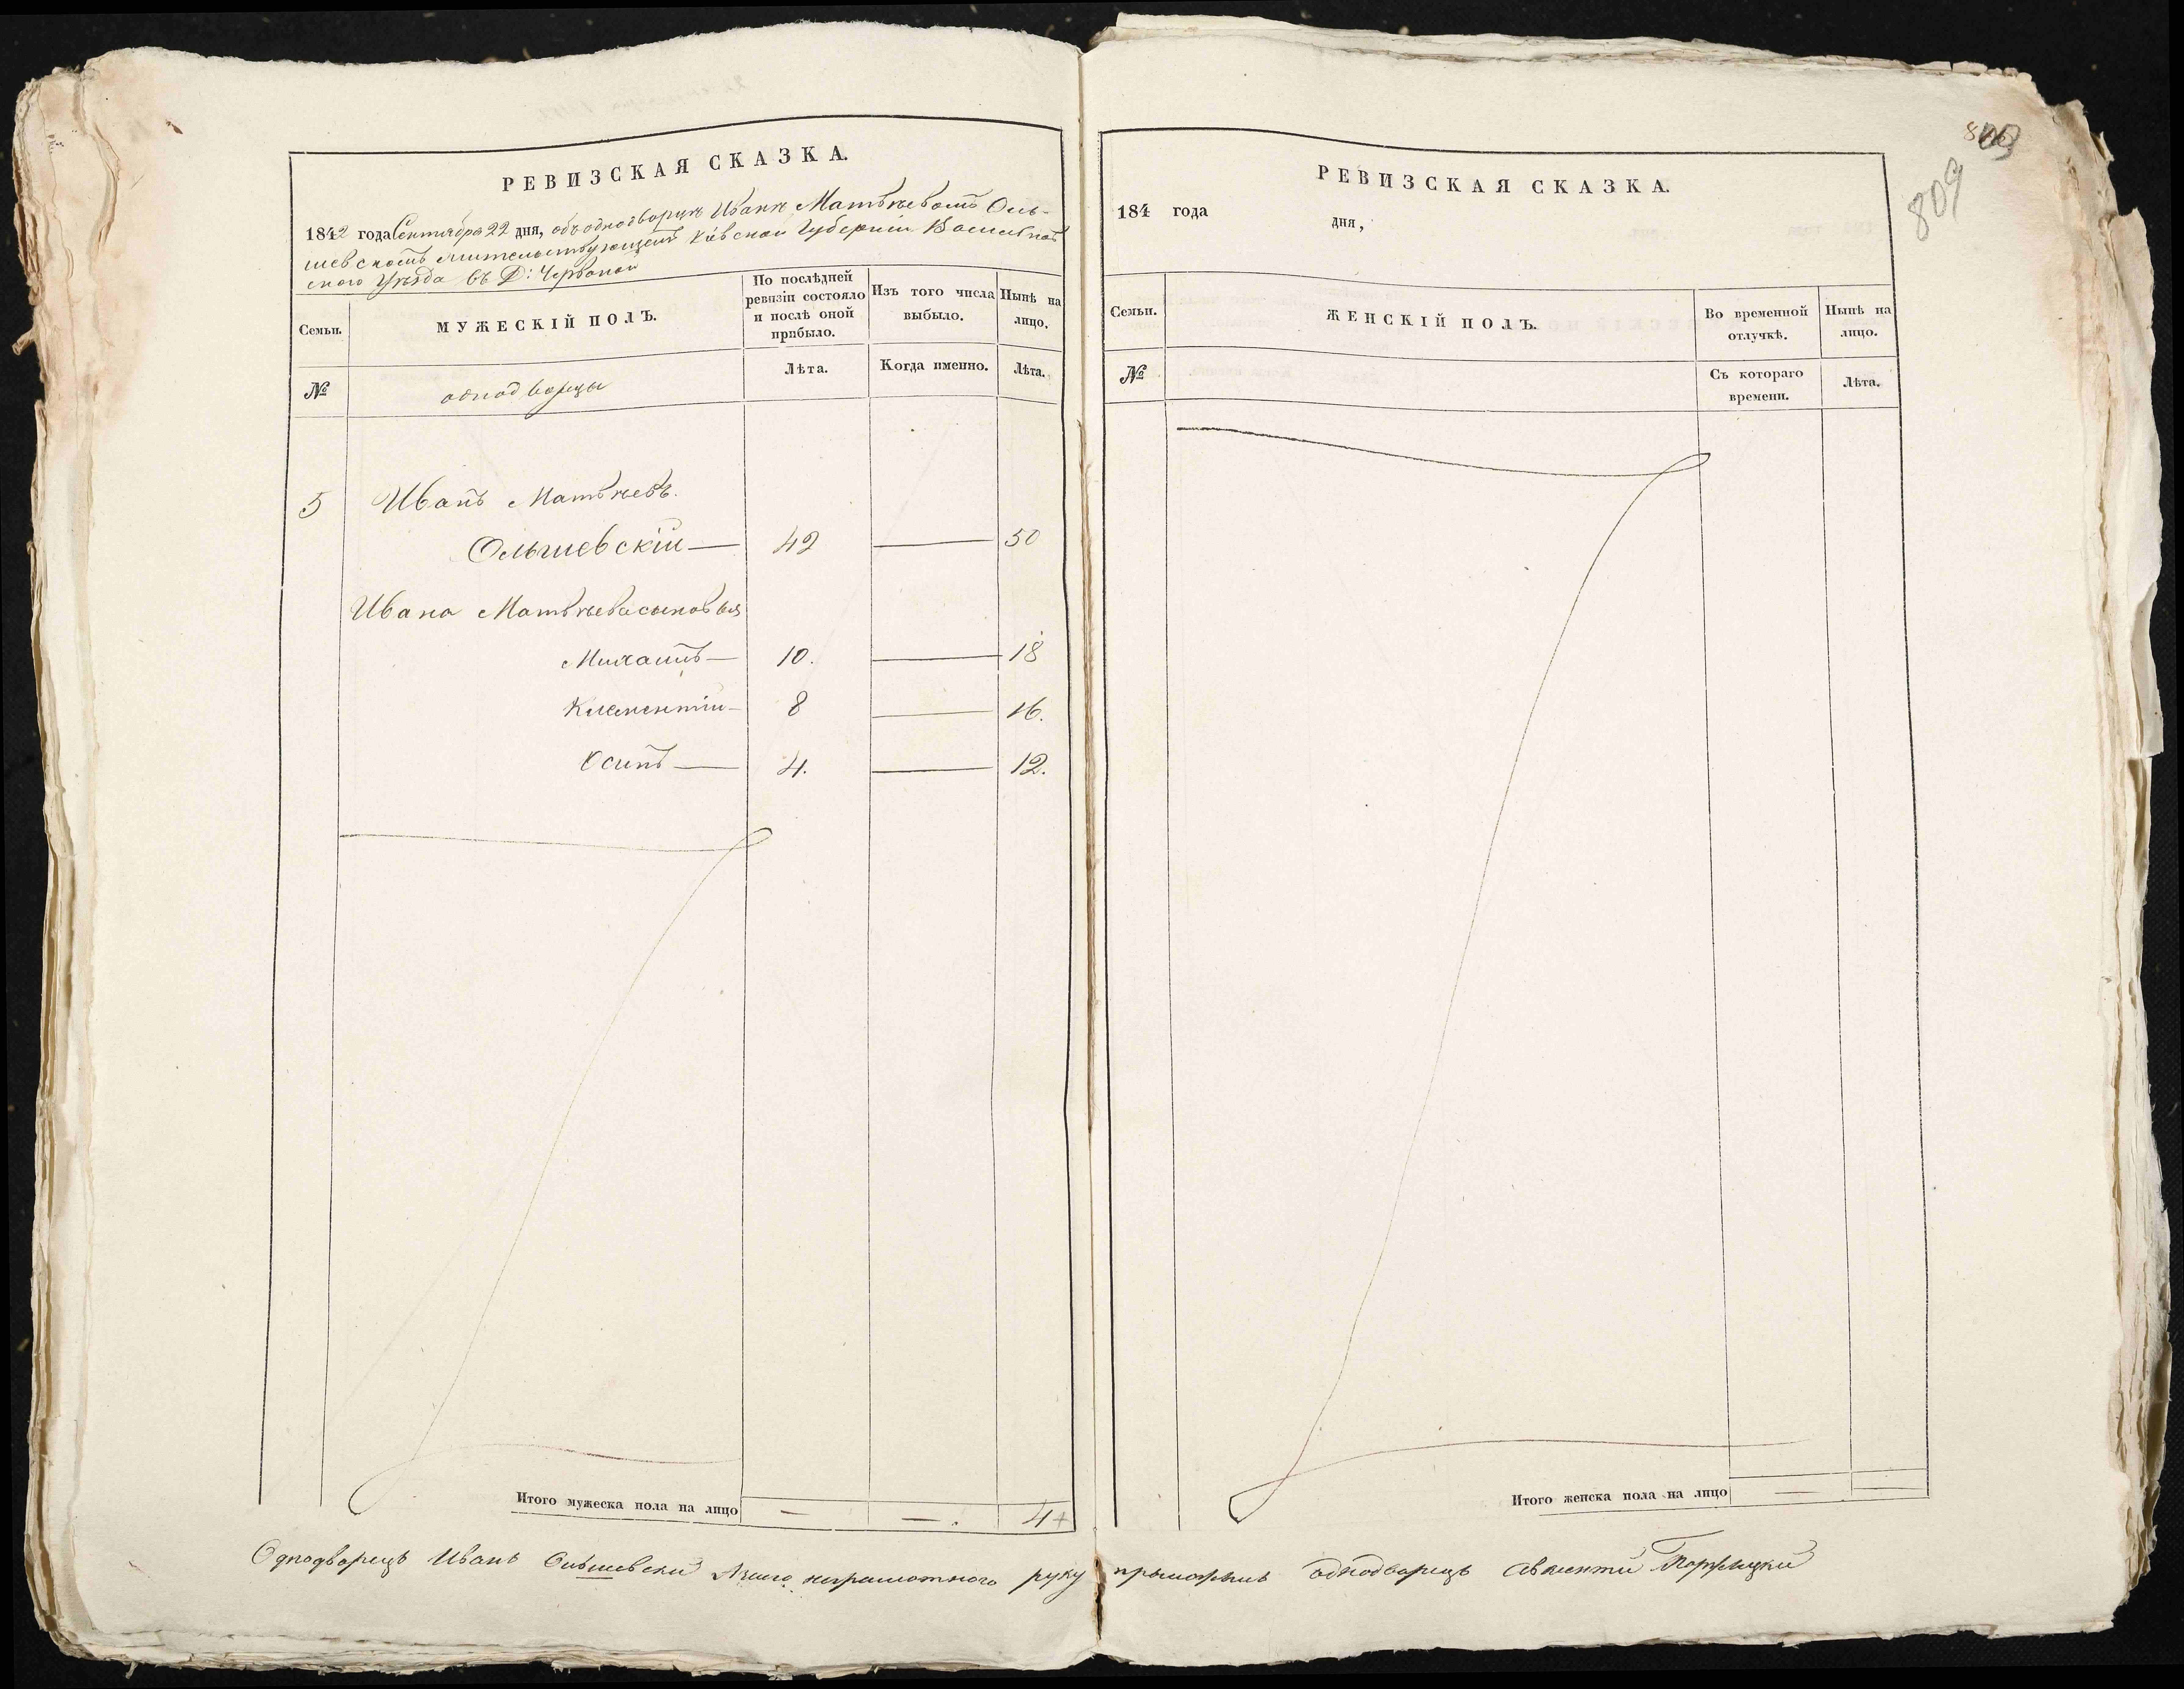 РЕВИЗСКАЯ СКАЗКА.
1842 года Сентября 22 дня, объ однодворцѣ Иванѣ Матвѣевомъ Оль-
шевскомъ жительствующемъ Кіевской Губерніи Василков
ского Уѣзда въ Д: Червоной
Семьи.
МУЖЕСКІЙ ПОЛЪ.
По послѣдней ревизіи состояло и послѣ оной прибыло.
Изъ того числа выбыло.
Нынѣ на лицо.
№
однодворцы
Лѣта.
Когда именно.
Лѣта.
5 Иванъ Матвѣевъ.
Ольшевскій — 42 — 50
Ивана Матвѣева сыновья
10. — 18
Климентій — 8 — 16.
Осипъ — 4. — 12.
Итого мужеска пола на лицо — — . 4
РЕВИЗСКАЯ СКАЗКА.
184 года дня,
Семьи.
ЖЕНСКІЙ ПОЛЪ.
Во временной отлучкѣ.
Нынѣ на лицо.
№
Съ котораго времени.
Лѣта.
Итого женска пола на лицо — —
809
Однодворецъ Иванъ Ольшевски неграмотного руку приложилъ однодворецъ